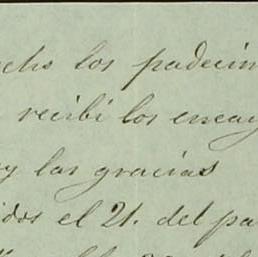 los padecim
recibi los encay
y las gracias
idos el 21. del pa